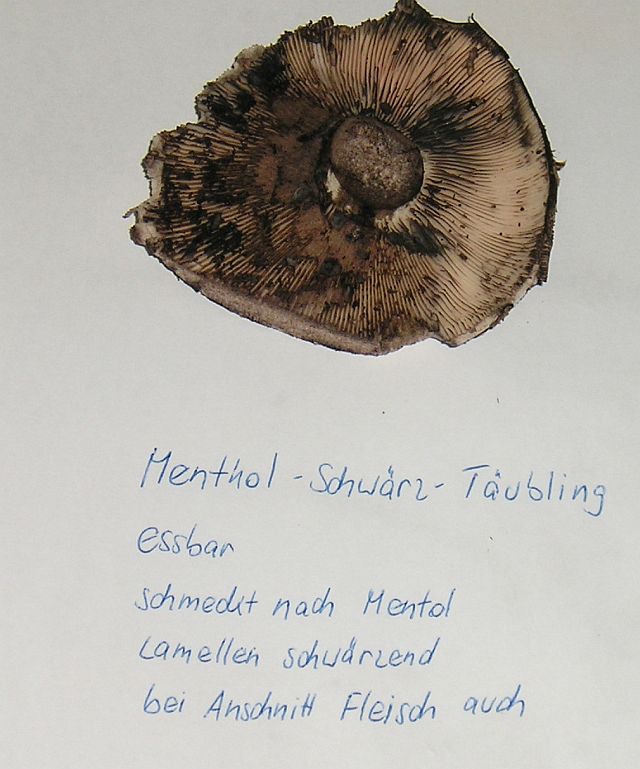 Menthol-Schwärz-Täubling
essbar
schmeckt nach Mentol
Lamellen schwärzend
bei Anschnitt Fleisch auch